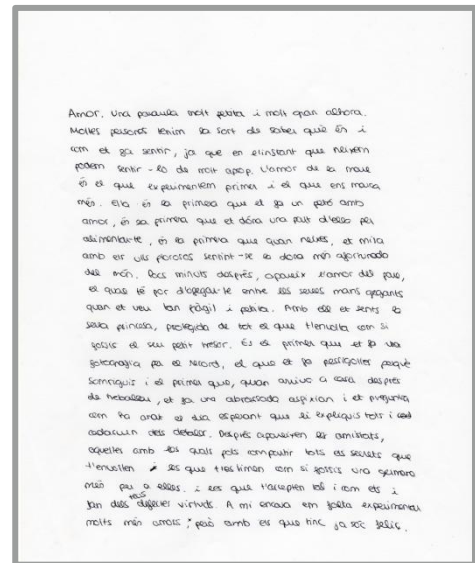 Amor. Una paraula molt petita i molt gran alhora.
Moltes persones tenim la sort de saber què és i
com et fa sentir, ja que en l'instant que neixem
podem sentir-lo de molt aprop. L'amor de la mare
és el que experimentem primer i el que ens marca
més. Ella és la primera que et fa un petó amb
amor, és la primera que et dóna una part d'ella per
alimentar-te, és la primera que quan neixes, et mira
amb els ulls plorosos sentint-se la dona més afortunada
del món. Pocs minuts després, apareix l'amor del pare,
el qual té por d'agafar-te entre les seves mans gegants
quan et veu tan fràgil i petita. Amb ell et sents la
seva princesa, protegida de tot el que t'envolta com si
fossis el seu petit tresor. És el primer que et fa una
fotografia pel record, el que et fa pessigolles perquè
somriguis i el primer que, quan arriva a casa després
de treballar, et fa una abraçada i et pregunta
com ha anat el dia esperant que li expliquis tots i
cadascun dels detalls. Després apareixen les amistats,
aquelles amb les quals pots compartir tots els secrets que
t'envolten i les que t'estimen com si fossis una germana
més per a elles. i les que t'accepten tal i com ets i
tan dels teus defectes virtuds. A mi encara em falta experimentar
molts més amors, però amb els que tinc ja sóc feliç.